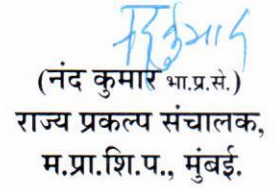 नंदकुमार
(नंद कुमार भा.प्र.से.)
राज्य प्रकल्प संचालक,
म.प्रा.शि.प., मुंबई.